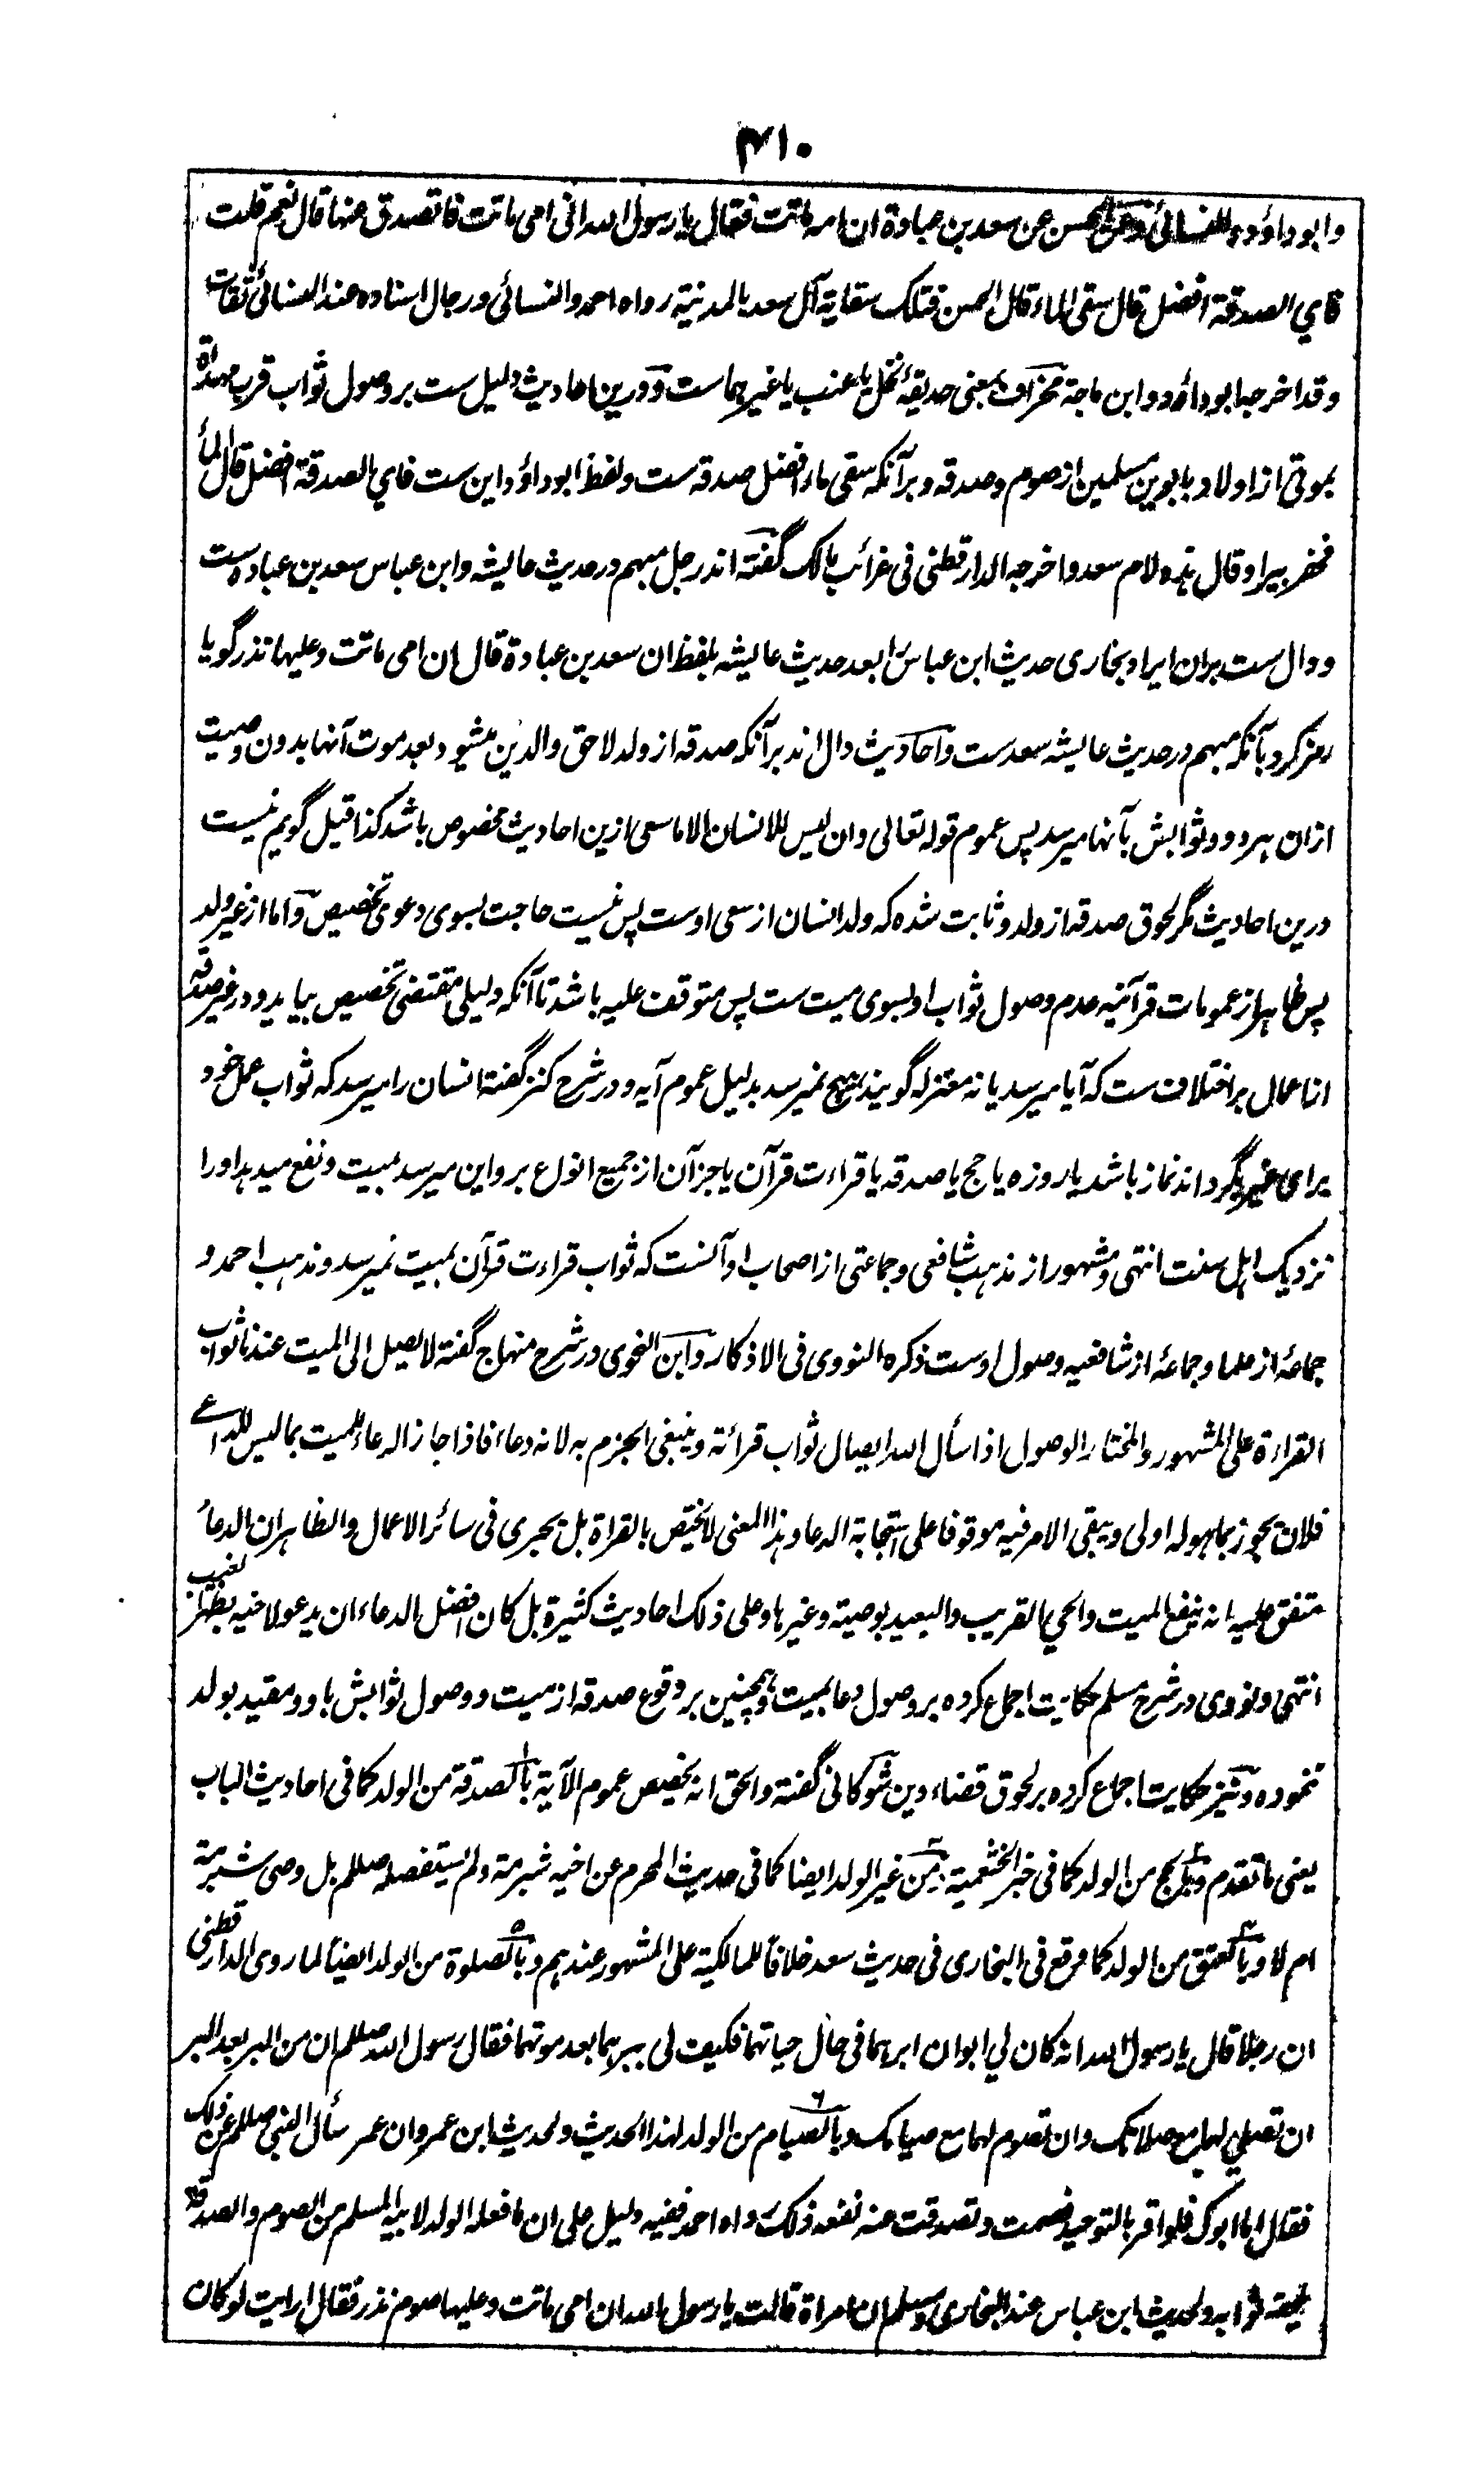 ۴۱۰
وابوداؤد والنسائی وعن الحسن عن سعد بن عبادة ان امه ماتت فقال یا رسول الله انی امی ماتت فاتصدق عنها قال نعم قلت
فای الصدقة افضل قال سقی الماء قال الحسن فتلک سقایة آل سعد بالمدینة رواه احمد والنسائی ورجال اسناده عند النسائی ثقات
وقد اخرجه ابوداؤد وابن ماجة مخراف بمعنی حدیقهٔ نخل یا عنب یا غیر هماست ودرین احادیث دلیل ست بر وصول ثواب قرب مهداة
بموتی از اولاد بابوین مسلمین از صوم وصدقه وبرآنکه سقی ماء افضل صدقه ست ولفظ ابوداؤد این ست فای الصدقة افضل قال الماء
فحفر بیرا وقال هذه لام سعد واخرجه الدارقطنی فی غرائب مالک گفته اند رجل مبهم در حدیث عایشه وابن عباس سعد بن عباده ست
ودال ست بران ایراد بخاری حدیث ابن عباس را بعد حدیث عایشه بلفظ ان سعد بن عبادة قال ان امی ماتت وعلیها نذر گویا
رمز کرد بآنکه مبهم در حدیث عایشه سعدست واحادیث دال اند برآنکه صدقه از ولد لاحق والدین میشود بعد موت آنها بدون وصیت
ازان هر دو وثوابش بآنها میرسد پس عموم قوله تعالی وان لیس للانسان الا ماسعی ازین احادیث مخصوص باشد کذا قیل گویم نیست
درین احادیث مگر لحوق صدقه از ولد وثابت شده که ولد انسان از سعی اوست پس نیست حاجت بسوی دعوی تخصیص واما از غیر ولد
پس ظاهر از عمومات قرآنیه عدم وصول ثواب او بسوی میت ست پس متوقف علیه باشد تا آنکه دلیلی مقتضی تخصیص بیاید ودر غیر صدقه
از اعمال بر اختلاف ست که آیا میرسد یا نه معتزله گویند هیچ نمیرسد بدلیل عموم آیه ودر شرح کنز گفته انسان را میرسد که ثواب عمل خود
برای غیر بگرداند نماز باشد یا روزه یا حج یا صدقه یا قراءت قرآن یا جز آن از جمیع انواع بر واین میرسد بمیت ونفع میدهد اورا
نزدیک اهل سنت انتهی ومشهور از مذهب شافعی وجماعتی از اصحاب او آنست که ثواب قراءت قرآن بمیت نمیرسد ومذهب احمد و
جماعهٔ از علما وجماعهٔ از شافعیه وصول اوست ذکره النووی فی الاذکار وابن النحوی در شرح منهاج گفته لا یصل الی المیت عندنا ثواب
القراءة علی المشهور والمختار الوصول اذا سأل الله ایصال ثواب قرائته وینبغی الجزم به لانه دعاء فاذا جاز الدعاء للمیت بما لیس للداعی
فلان یجوز بما هو له اولی ویبقی الامر فیه موقوفا علی استجابة الدعا وهذا المعنی لا یختص بالقراة بل یجری فی سائر الاعمال والظاهر ان الدعاء
متفق علیه انه ینفع المیت والحی القریب والبعید بوصیة وغیرها وعلی ذلک احادیث کثیرة بل کان افضل الدعاء ان یدعو لاخیه بظهر الغیب
انتهی ونووی در شرح مسلم حکایت اجماع کرده بر وصول دعا بمیت وهمچنین بر وقوع صدقه از میت ووصول ثوابش باو ومقید بولد
نموده ونیز حکایت اجماع کرده بر لحوق قضاء دین شوکانی گفته والحق انه یخصص عموم الآیة بالصدقة من الولد کما فی احادیث الباب
یعنی ما تقدم وبالحج من الولد کما فی خبر الخثعمیة ومن غیر الولد ایضا کما فی حدیث المحرم عن اخیه شبرمة ولم یستفصله صللم بل وصی شبرمة
ام لا وبالعتق من الولد کما وقع فی البخاری فی حدیث سعد خلافا للمالکیة علی المشهور عندهم وبالصلوة من الولد ایضا لما روی الدارقطنی
ان رجلا قال یا رسول الله انه کان لی ابوان ابرهما فی حال حیاتهما فکیف لی ببرهما بعد موتهما فقال رسول الله صللم ان من البر بعد البر
ان تصلی لهما مع صلاتک وان تصوم لهما مع صیامک وبالصیام من الولد لهذا الحدیث ولحدیث ابن عمرو ان عمر سأل النبی صللم عن ذلک
فقال اما ابوک فلو اقر بالتوحید فصمت وتصدقت عنه نفعه ذلک رواه احمد ففیه دلیل علی ان ما فعله الولد لابیه المسلم من الصوم والصدقة
یلحقه ثوابه ولحدیث ابن عباس عند البخاری ومسلم ان امراة قالت یا رسول الله ان امی ماتت وعلیها صوم نذر فقال ارایت لو کان